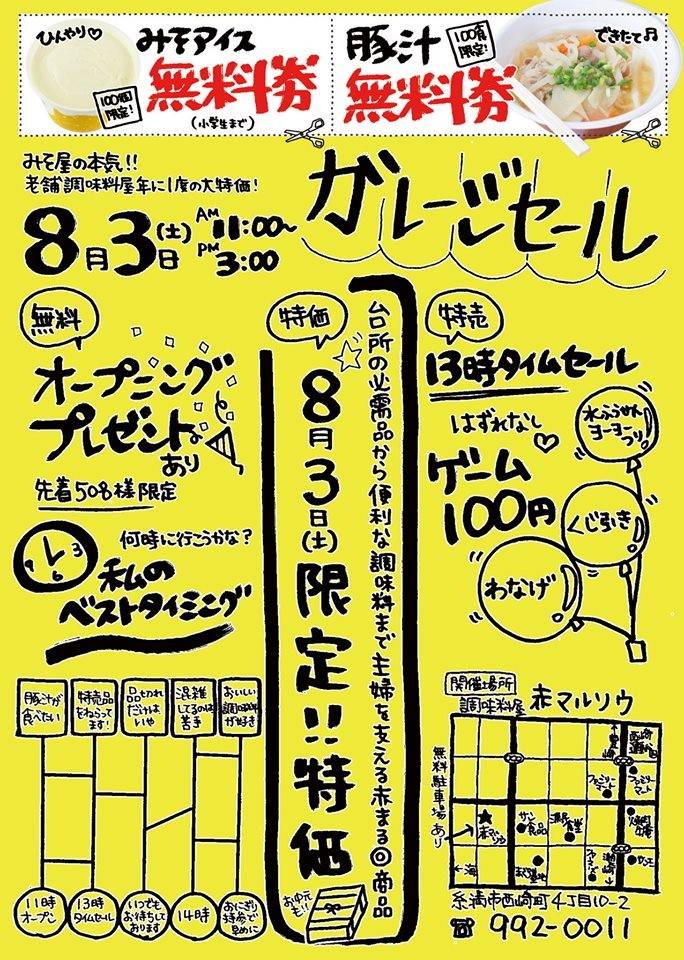 ひんやり♡
みそアイス
無料券
100個限定!
(小学生まで)
豚汁
無料券
100食限定!
できたて♫
みそ屋の本気!!
老舗調味料屋年に1度の大特価!
8月3日(土)
AM 11:00~
PM 3:00
ガレージセール
無料
オープニング
プレゼント
あり
先着50名様限定
何時に行こうかな?
私の
ベストタイミング
特価
台所の必需品から便利な調味料まで主婦を支える赤まる◎商品
8月3日(土)限定!!特価
お中元も!!
特売
13時タイムセール
はずれなし
ゲーム
100円
水ふうせんヨーヨーつり
くじ引き
わなげ
豚汁が食べたい
特売品をねらってます!
品切れだけはいや
混雑してるのは苦手
おいしい調味料が好き
11時オープン
13時タイムセール
いつでもお待ちしております
14時
おにぎり持参で早めに
開催場所
調味料屋 赤マルソウ
無料駐車場あり
ファミリーマート
ファミリーマート
赤マルソウ
サン食品
←海
糸満市西崎町4丁目10-2
☎ 992-0011